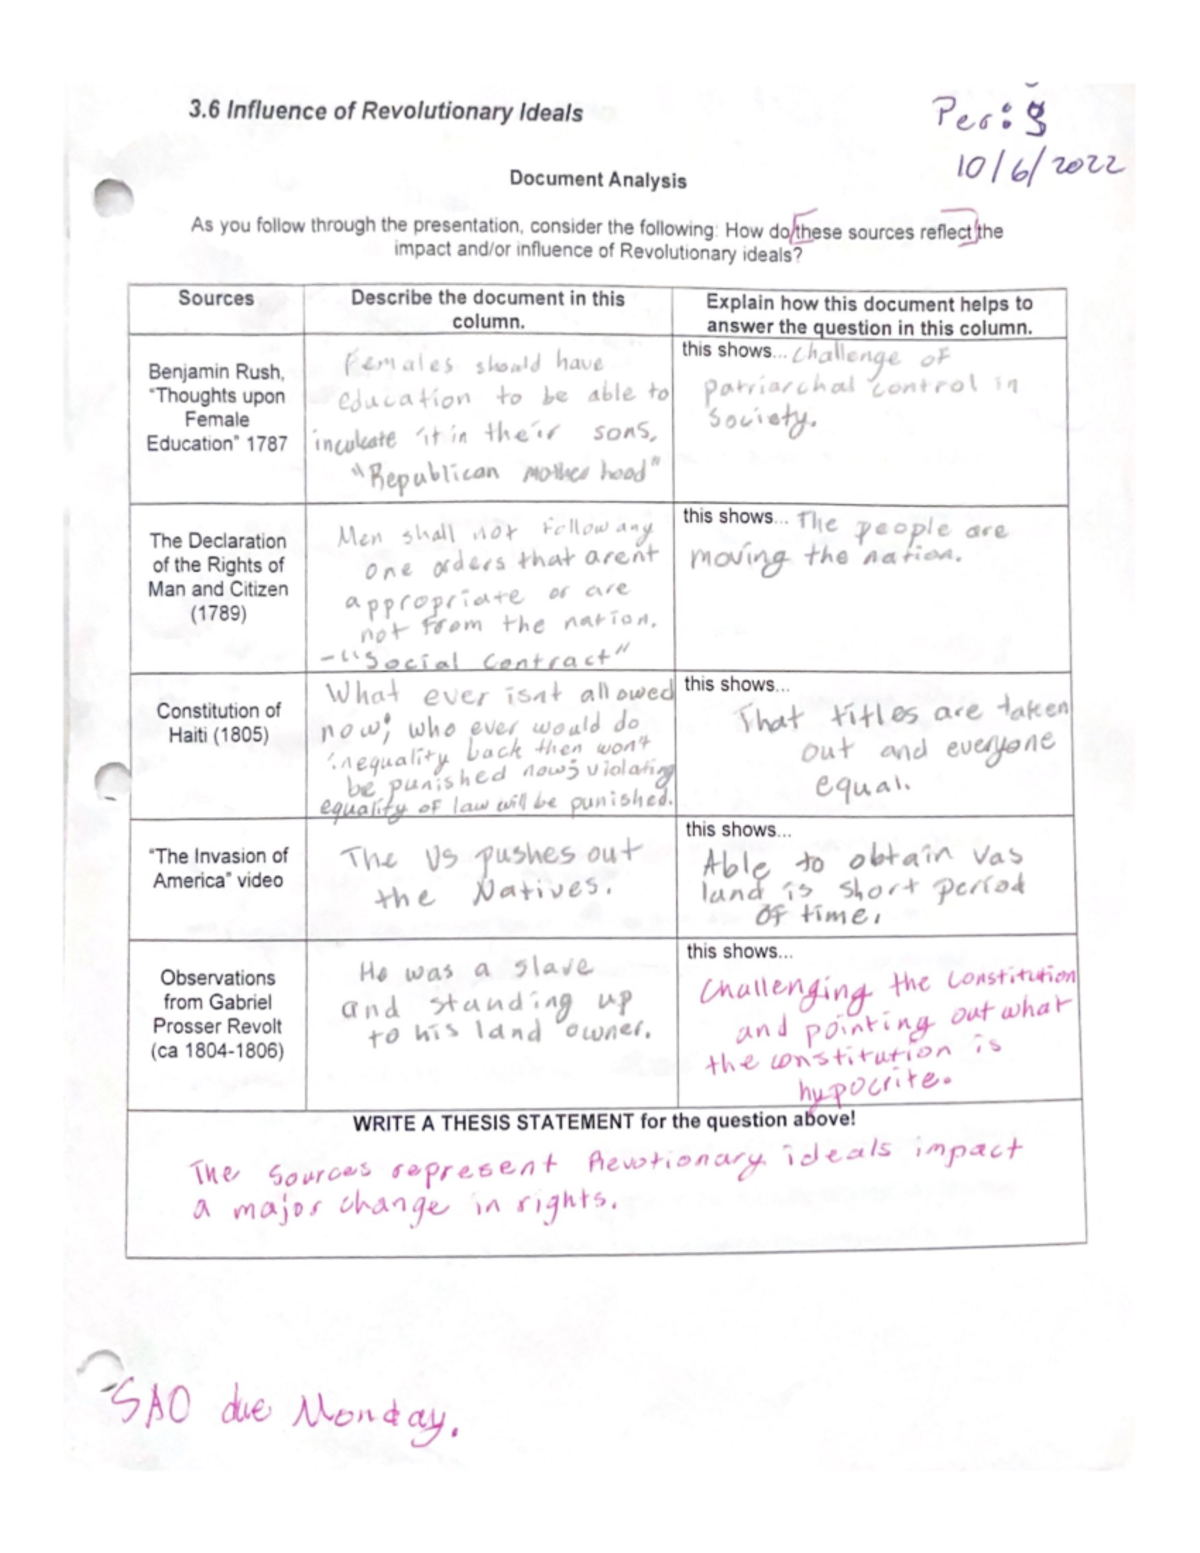 3.6 Influence of Revolutionary Ideals
Per: 3
10/6/2022
Document Analysis
As you follow through the presentation, consider the following: How do these sources reflect the
impact and/or influence of Revolutionary ideals?
Sources
Describe the document in this
column.
Explain how this document helps to
answer the question in this column.
Benjamin Rush,
"Thoughts upon
Female
Education" 1787
Females should have
education to be able to
inculcate it in their sons.
"Republican motherhood"
this shows... Challenge of
patriarchal control in
society.
The Declaration
of the Rights of
Man and Citizen
(1789)
Men shall not follow any
one orders that arent
appropriate or are
not from the nation.
-"Social Contract"
this shows... The people are
moving the nation.
Constitution of
Haiti (1805)
What ever isnt allowed
now; who ever would do
inequality back then won't
be punished now; violating
equality of law will be punished.
this shows...
That titles are taken
out and everyone
equal.
"The Invasion of
America" video
The US pushes out
the Natives.
this shows...
Able to obtain vas
land is short period
of time.
Observations
from Gabriel
Prosser Revolt
(ca 1804-1806)
He was a slave
and standing up
to his land owner.
this shows...
Challenging the constitution
and pointing out what
the constitution is
hypocrite.
WRITE A THESIS STATEMENT for the question above!
The sources represent Revotionary ideals impact
a major change in rights.
SAO due Monday.